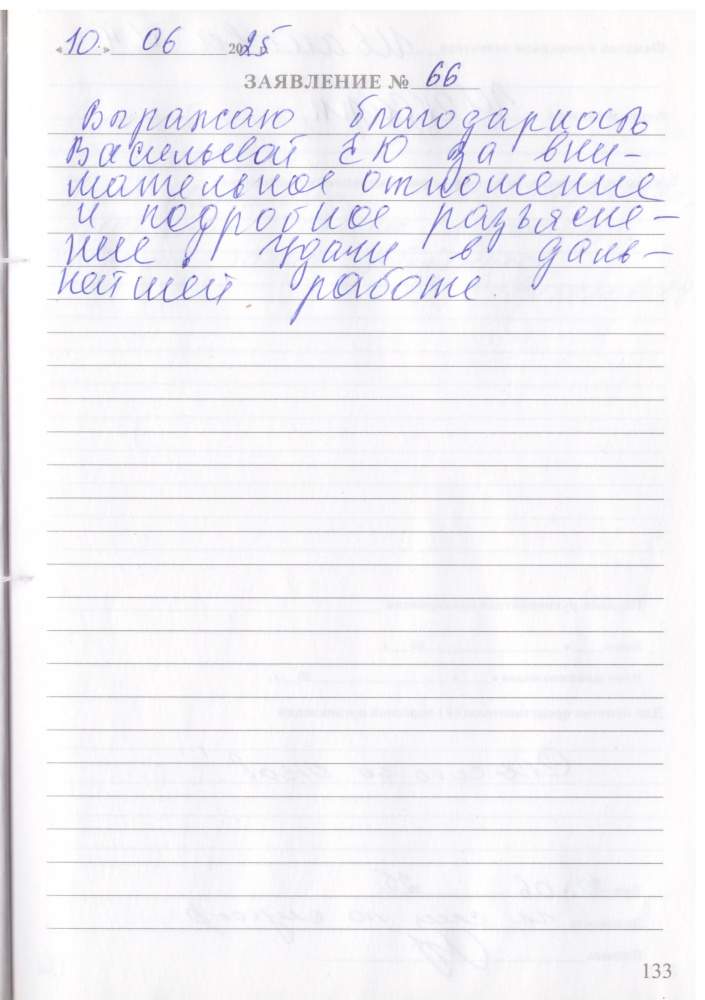 «10.» 06 2025
ЗАЯВЛЕНИЕ № 66
Выражаю благодарность
Васильевой ЕЮ за вни-
мательное отношение
и подробное разъясне-
ние. Удачи в даль-
нейшей работе.
133